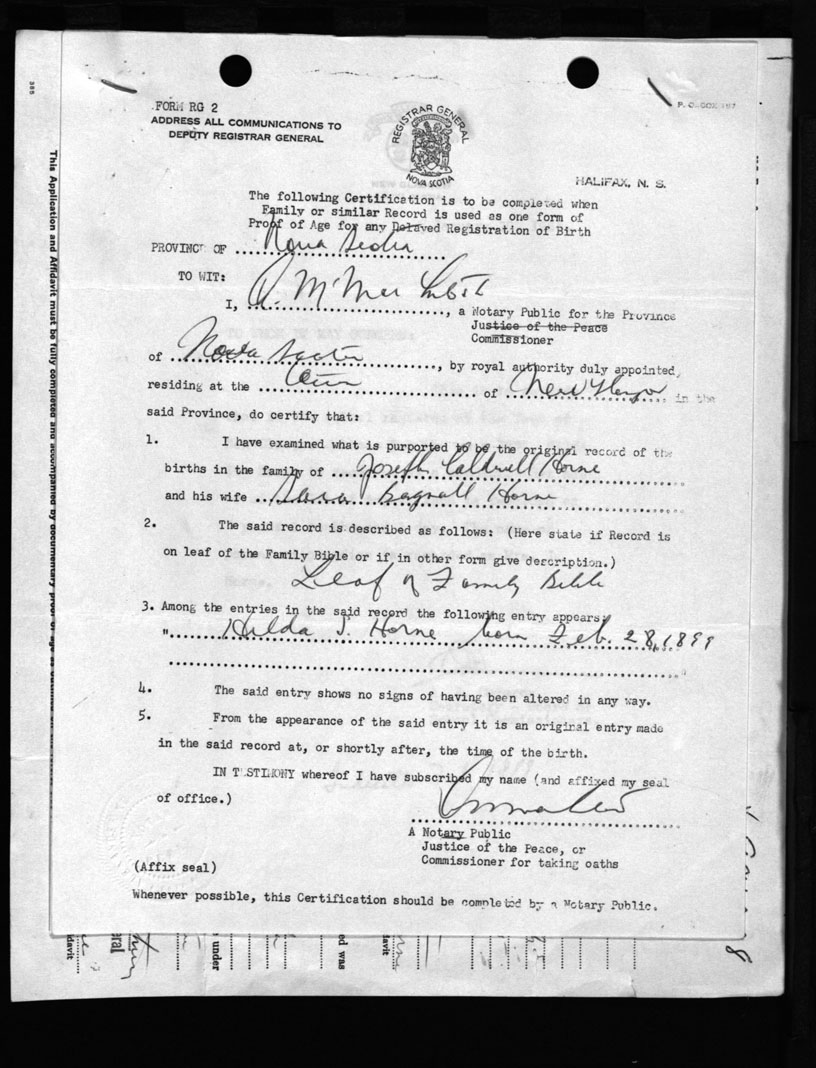 FORM RG 2
ADDRESS ALL COMMUNICATIONS TO
DEPUTY REGISTRAR GENERAL
REGISTRAR GENERAL
NOVA SCOTIA
HALIFAX, N. S.
The following Certification is to be completed when
Family or similar Record is used as one form of
Proof of Age for any Delayed Registration of Birth
PROVINCE OF Nova Scotia
TO WIT:
I,
, a Notary Public for the Province
Justice of the Peace
Commissioner
of Nova Scotia, by royal authority duly appointed,
residing at the of New in the
said Province, do certify that:
1. I have examined what is purported to be the original record of the
births in the family of Joseph Caldwell Horne
and his wife Bagnall Horne
2. The said record is described as follows: (Here state if Record is
on leaf of the Family Bible or if in other form give description.)
Leaf of Family Bible
3. Among the entries in the said record the following entry appears:
"Hilda S. Horne born Feb. 28, 1899
4. The said entry shows no signs of having been altered in any way.
5. From the appearance of the said entry it is an original entry made
in the said record at, or shortly after, the time of the birth.
IN TESTIMONY whereof I have subscribed my name (and affixed my seal
of office.)
A Notary Public
Justice of the Peace, or
Commissioner for taking oaths
(Affix seal)
Whenever possible, this Certification should be completed by a Notary Public.
385
This Application and Affidavit must be fully completed and accompanied by documentary proof of age
under
ed was